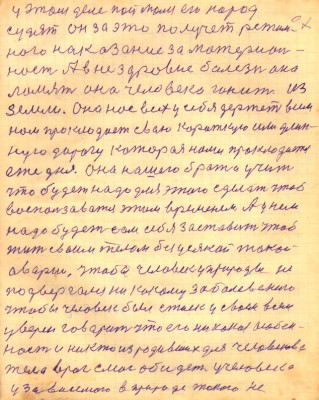 у этом деле поймали его народ
судят он за это получет режим
ного наказание за материон-
ност А в нездоровие болезн она
ломят она человека гонит из
Земли. Она нас всех у себя держет всем
нам прокладает сваю короткую или длин-
ную дорогу которая нами прокладается
еже дня. Она нашего брата учит
что будет надо для этого сделат чтоб
воспользоватся этим временем А у нем
надо будет сам себя заставит чтоб
жит своим телом без усякой такой
аварии, чтоба человек у природы не
подвергался никакому заболеванию
чтобы человек был стоек у своем всем
уверен говарит что его никакая особен-
ност и никто из родивших для человекова
тела враг смог обидет учеловека
уза висимого в природе такого не